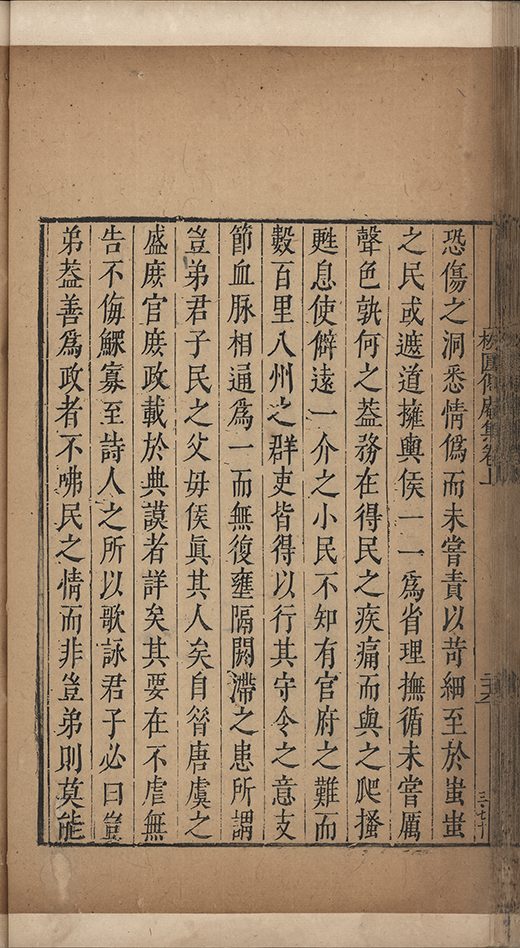 恐傷之洞悉情僞而未嘗責以苛細至於蚩蚩
之民或遮道擁輿侯一一爲省理撫循未嘗厲
聲色孰何之葢務在得民之疾痛而與之爬搔
甦息使僻遠一介之小民不知有官府之難而
數百里八州之群吏皆得以行其守令之意支
節血脉相通爲一而無復壅隔閼滯之患所謂
豈弟君子民之父毋侯眞其人矣自昝唐虞之
盛庶官庶政載於典謨者詳矣其要在不虐無
告不侮鰥寡至詩人之所以歌詠君子必曰豈
弟葢善爲政者不咈民之情而非豈弟則莫能